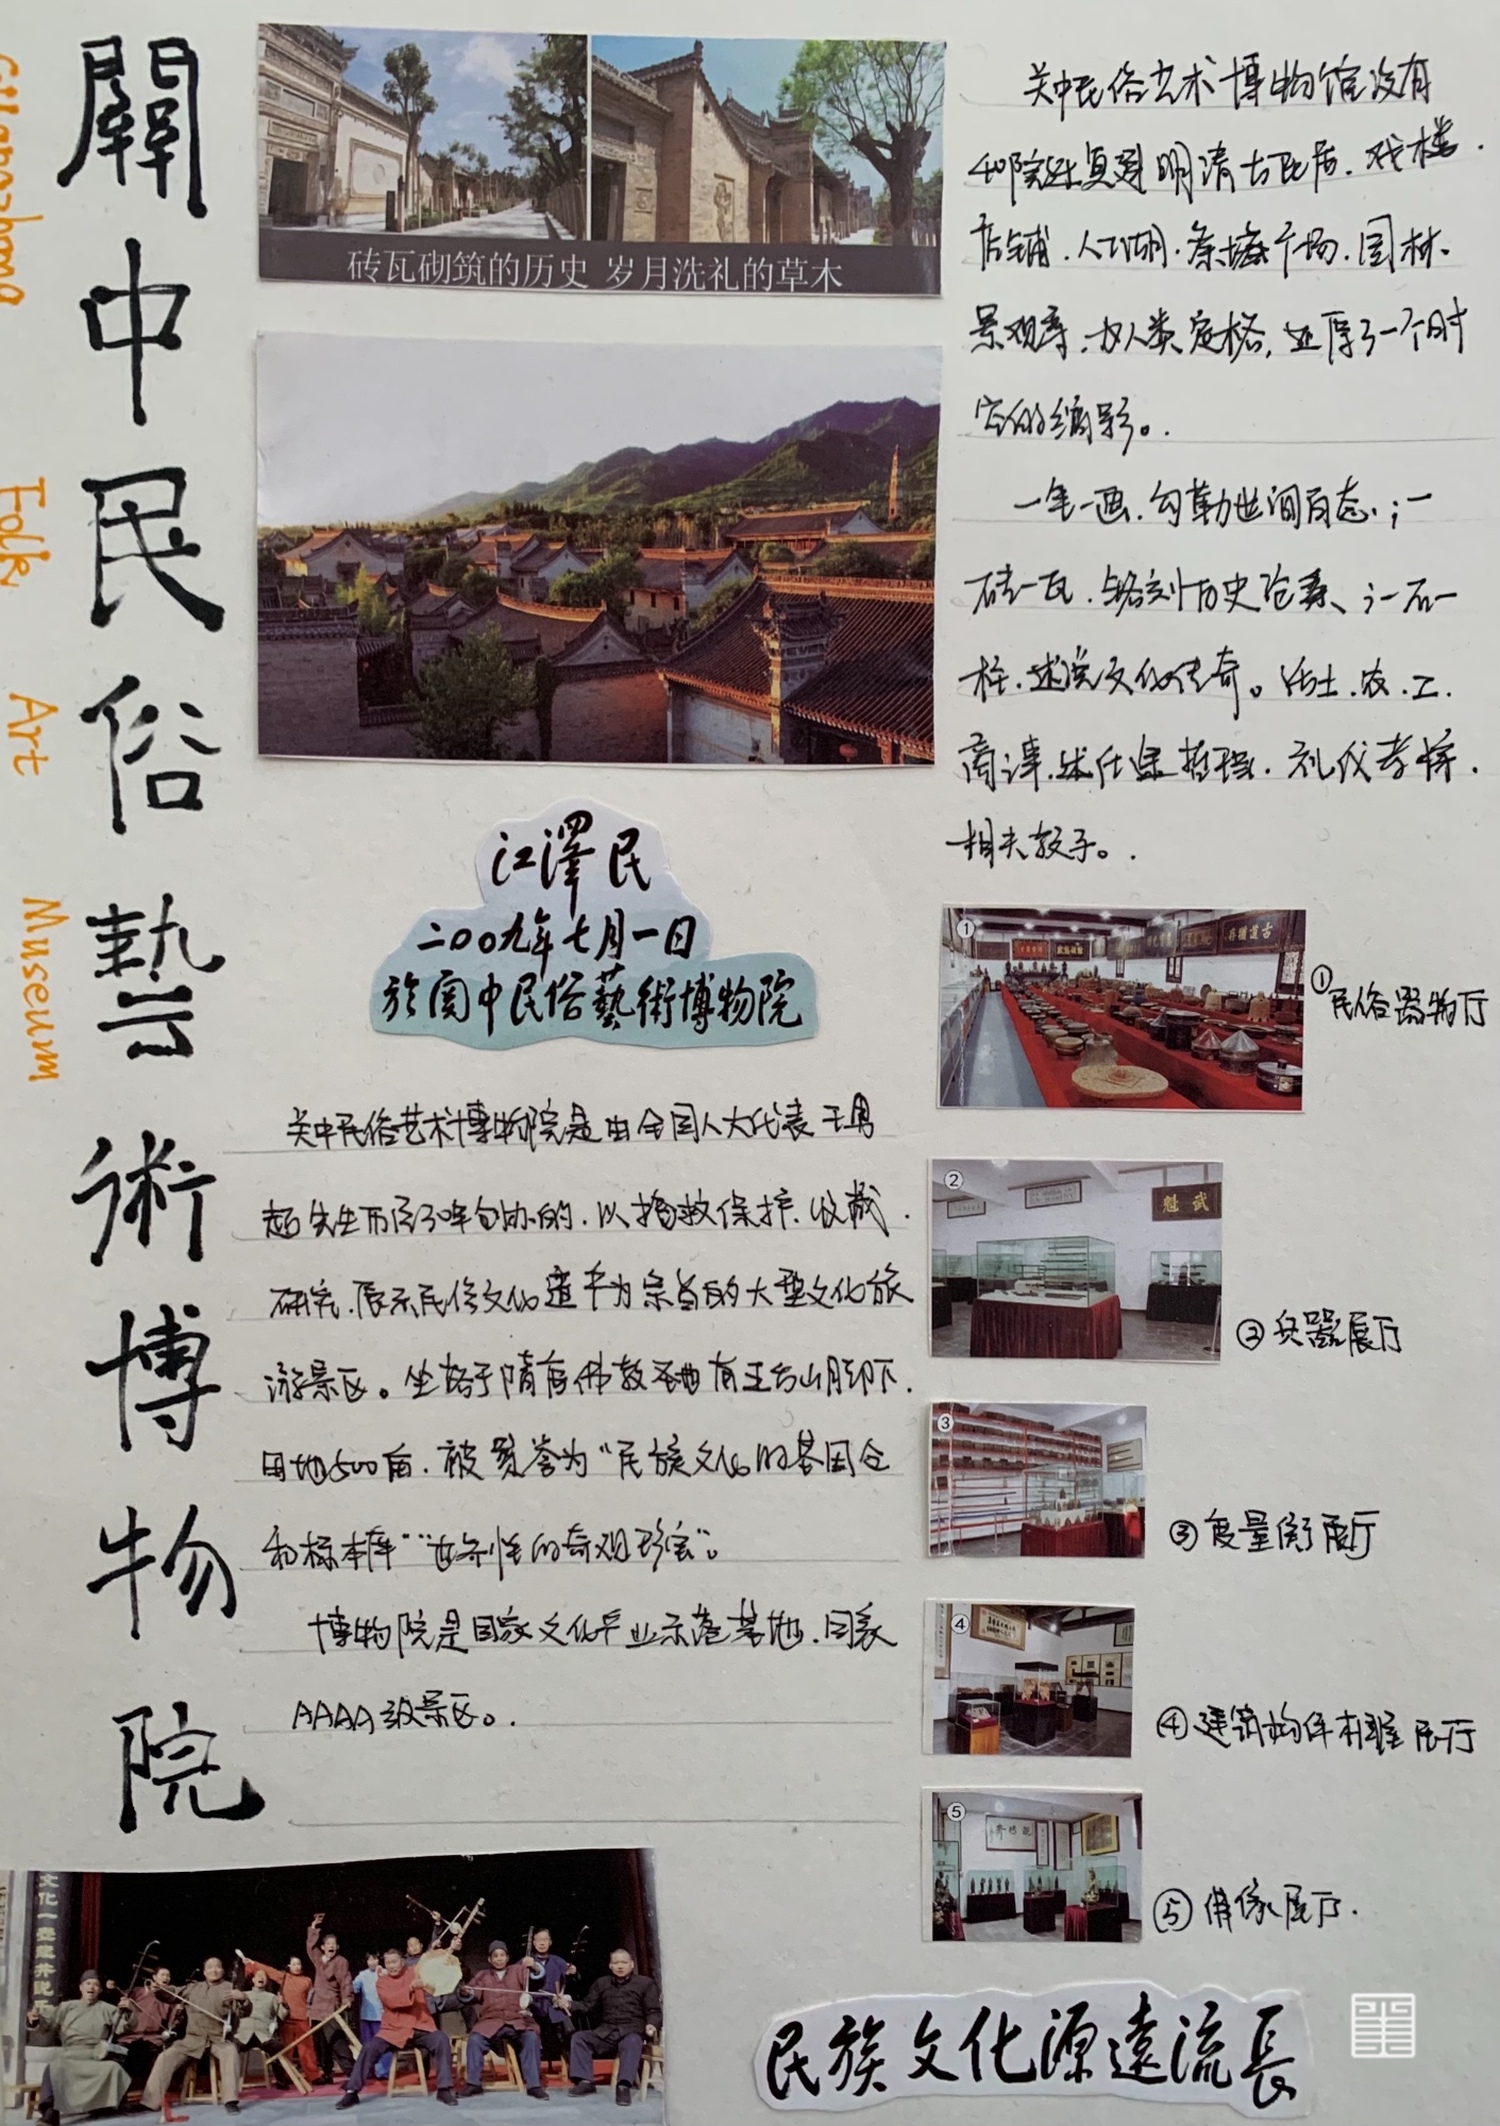 關中民俗藝術博物院
Guanzhong Folk Art Museum
砖瓦砌筑的历史 岁月洗礼的草木
关中民俗艺术博物馆没有
40院迁复建明清古民居、戏楼、
店铺、人工湖、广场、园林
景观等,为人类定格,还原了一个时
空的缩影。
一笔一画,勾勒世间百态;一
砖一瓦,铭刻历史沧桑;一石一
柱,述说文化传奇。话士、农、工、
商读,述仕途哲理,礼仪孝悌,
相夫教子。
江澤民
二〇〇九年七月一日
於関中民俗藝術博物院
关中民俗艺术博物院是由全国人大代表王勇
超先生历经30年创办的,以抢救保护、收藏、
研究、展示民俗文化遗产为宗旨的大型文化旅
游景区。坐落于隋唐佛教圣地南五台山脚下,
用地500亩,被赞誉为“民族文化的基因仓
和标本库”“世界性的奇观形容”。
博物院是国家文化产业示范基地、国家
AAAA级景区。
①
①民俗器物厅
②
武魁
②兵器展厅
③
③度量衡展厅
④
④建筑构件木雕展厅
⑤
⑤佛像展厅.
古道犹存
民族文化源遠流長